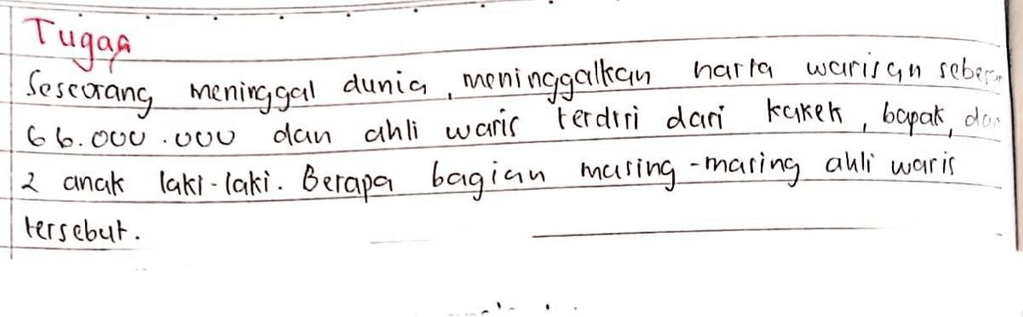 Tugas
Seseorang meninggal dunia, meninggalkan harta warisan sebesar
66.000.000 dan ahli waris terdiri dari kakek, bapak, dan
2 anak laki-laki. Berapa bagian masing-masing ahli waris
tersebut.